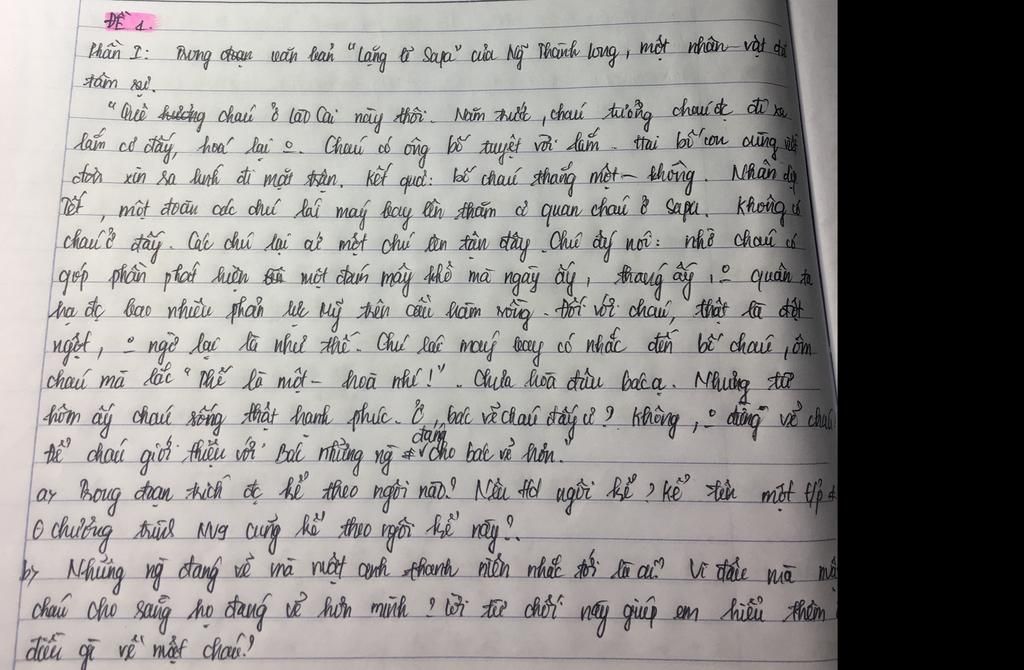 ĐỀ 1.
Phần I: Trong đoạn văn bản "Lặng lẽ Sapa" của Ng~ Thành Long, một nhân vật đã
tâm sự.
"Quê hương cháu ở Lào Cai này thôi. Năm trước, cháu tưởng cháu đc đi xa
lắm cơ đấy, hoá lại o. Cháu có ông bố tuyệt vời lắm. Hai bố con cùng viết
đơn xin ra lính đi mặt trận. Kết quả: bố cháu thắng một - không. Nhân dịp
Tết, một đoàn các chú lái máy bay lên thăm cơ quan cháu ở Sapa. Không có
cháu ở đấy. Các chú lại cử một chú lên tận đây. Chú ấy nói: nhờ cháu có
góp phần phát hiện một đám mây khô mà ngày ấy, tháng ấy, o quân ta
hạ đc bao nhiêu phản lực Mỹ trên cầu hàm rồng. Đối với cháu, thật là đột
ngột, o ngờ lại là như thế. Chú lái máy bay có nhắc đến bố cháu, ôm
cháu mà lắc "Thế là một - hoà nhé!". Chưa hoà đâu bác ạ. Nhưng từ
hôm ấy cháu sống thật hạnh phúc. Ơ, bác vẽ cháu đấy ư? Không, o đừng vẽ cháu
Để cháu giới thiệu với Bác những ng đáng cho bác vẽ hơn."
a, Trong đoạn trích đc kể theo ngôi nào? Nêu td ngôi kể? Kể tên một t/p
ở chương trình NV9 cũng kể theo ngôi kể này?.
b, Những ng đáng vẽ mà một anh thanh niên nhắc tới là ai? Vì đâu mà
cháu cho rằng họ đáng vẽ hơn mình? Lời từ chối này giúp em hiểu thêm
điều gì về một cháu?